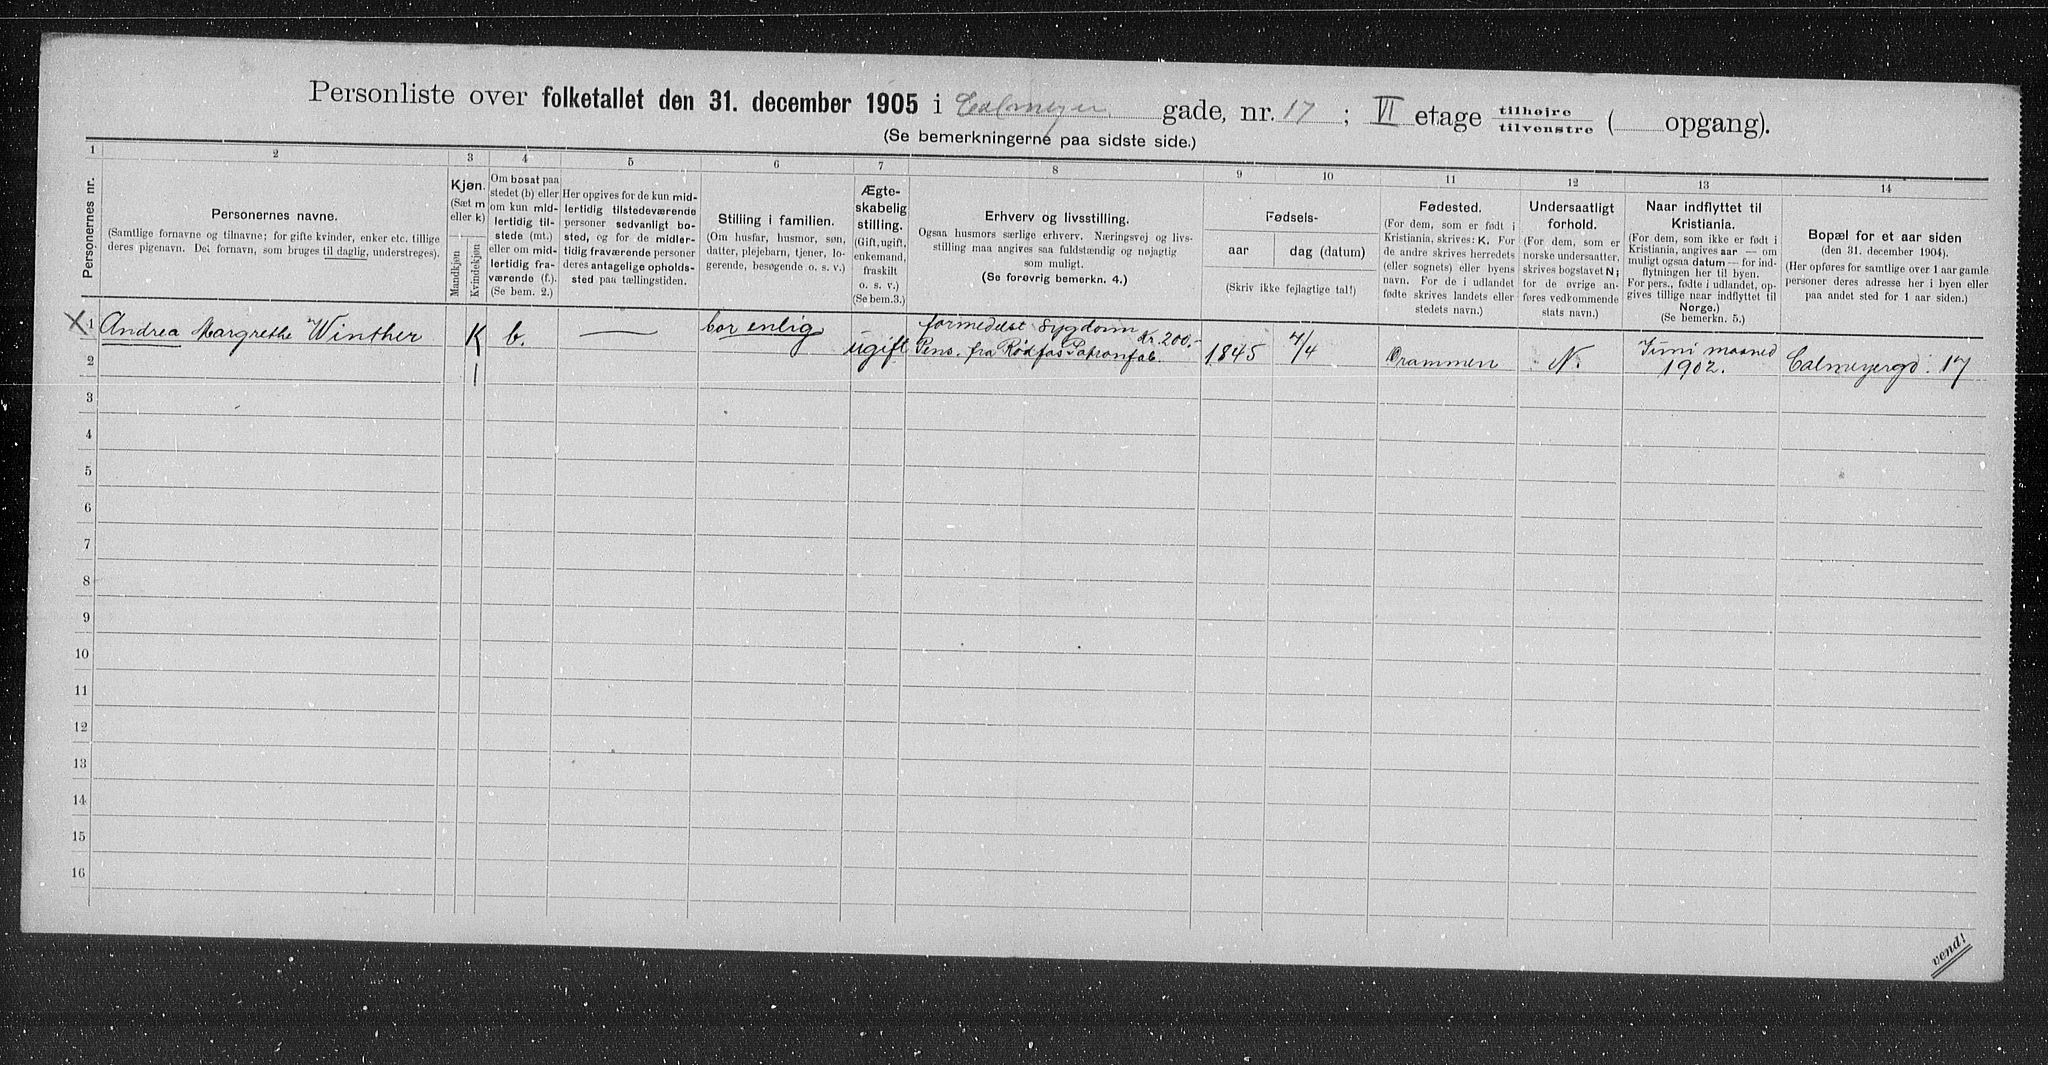 Personliste over folketallet den 31. december 1905 i Calmeyer gade, nr. 17 ; VI etage tilhøire tilvenstre ( opgang).
(Se bemerkningerne paa sidste side.)
1 2 3 4 5 6 7 8 9 10 11 12 13 14
Personernes nr.
Personernes navne.
(Samtlige fornavne og tilnavne; for gifte kvinder, enker etc. tillige
deres pigenavn. Det fornavn, som bruges til daglig, understreges).
Kjøn.
(Sæt m
eller k)
Mandkjøn
Kvindekjøn
Om bosat paa
stedet (b) eller
om kun mid-
lertidig til-
stede (mt.)
eller om mid-
lertidig fra-
værende (f.).
(Se bem. 2.)
Her opgives for de kun mid-
lertidig tilstedeværende
personer sedvanligt bo-
sted, og for de midler-
tidig fraværende personer
deres antagelige opholds-
sted paa tællingstiden.
Stilling i familien.
(Om husfar, husmor, søn,
datter, plejebarn, tjener, lo-
gerende, besøgende o. s. v.)
Ægte-
skabelig
stilling.
(Gift, ugift,
enkemand,
fraskilt
o. s. v.)
(Se bem.3.)
Erhverv og livsstilling.
Ogsaa husmors særlige erhverv. Næringsvej og livs-
stilling maa angives saa fuldstændig og nøjagtig
som muligt.
(Se forøvrig bemerkn. 4.)
Fødsels-
aar dag (datum)
(Skriv ikke fejlagtige tal!)
Fødested.
(For dem, som er født i
Kristiania, skrives: K. For
de andre skrives herredets
(eller sognets) eller byens
navn. For de i udlandet
fødte skrives landets eller
stedets navn.)
Undersaatligt
forhold.
(For dem, som er
norske undersaatter,
skrives bogstavet N;
for de øvrige an-
føres vedkommende
stats navn.)
Naar indflyttet til
Kristiania.
(For dem, som ikke er født i
Kristiania, angives aar — om
muligt ogsaa datum — for ind-
flytningen her til byen.
For pers., fødte i udlandet, op-
gives tillige naar indflyttet til
Norge.)
(Se bemerkn. 5.)
Bopæl for et aar siden
(den 31. december 1904).
(Her opføres for samtlige over 1 aar gamle
personer deres adresse her i byen eller
paa andet sted for 1 aar siden.)
X 1 Andrea Margrethe Winther K b. — bor enlig ugift formedelst Sygdom Kr. 200.-
Pens. fra Rødfos Patronfab. 1845 7/4 Drammen N. Juni maaned
1902. Calmeyergd. 17
2
3
4
5
6
7
8
9
10
11
12
13
14
15
16
vend!